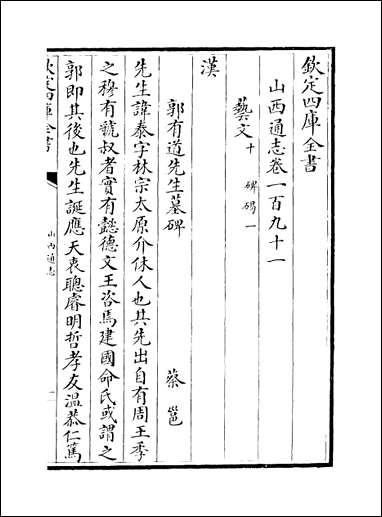 欽定四庫全書
山西通志卷一百九十一
藝文十 碑碣一
漢
郭有道先生墓碑 蔡邕
先生諱泰字林宗太原介休人也其先出自有周王季
之穆有虢叔者實有懿德文王咨焉建國命氏或謂之
郭即其後也先生誕應天衷聰睿明哲孝友温恭仁篤
欽定四庫全書
山西通志
一